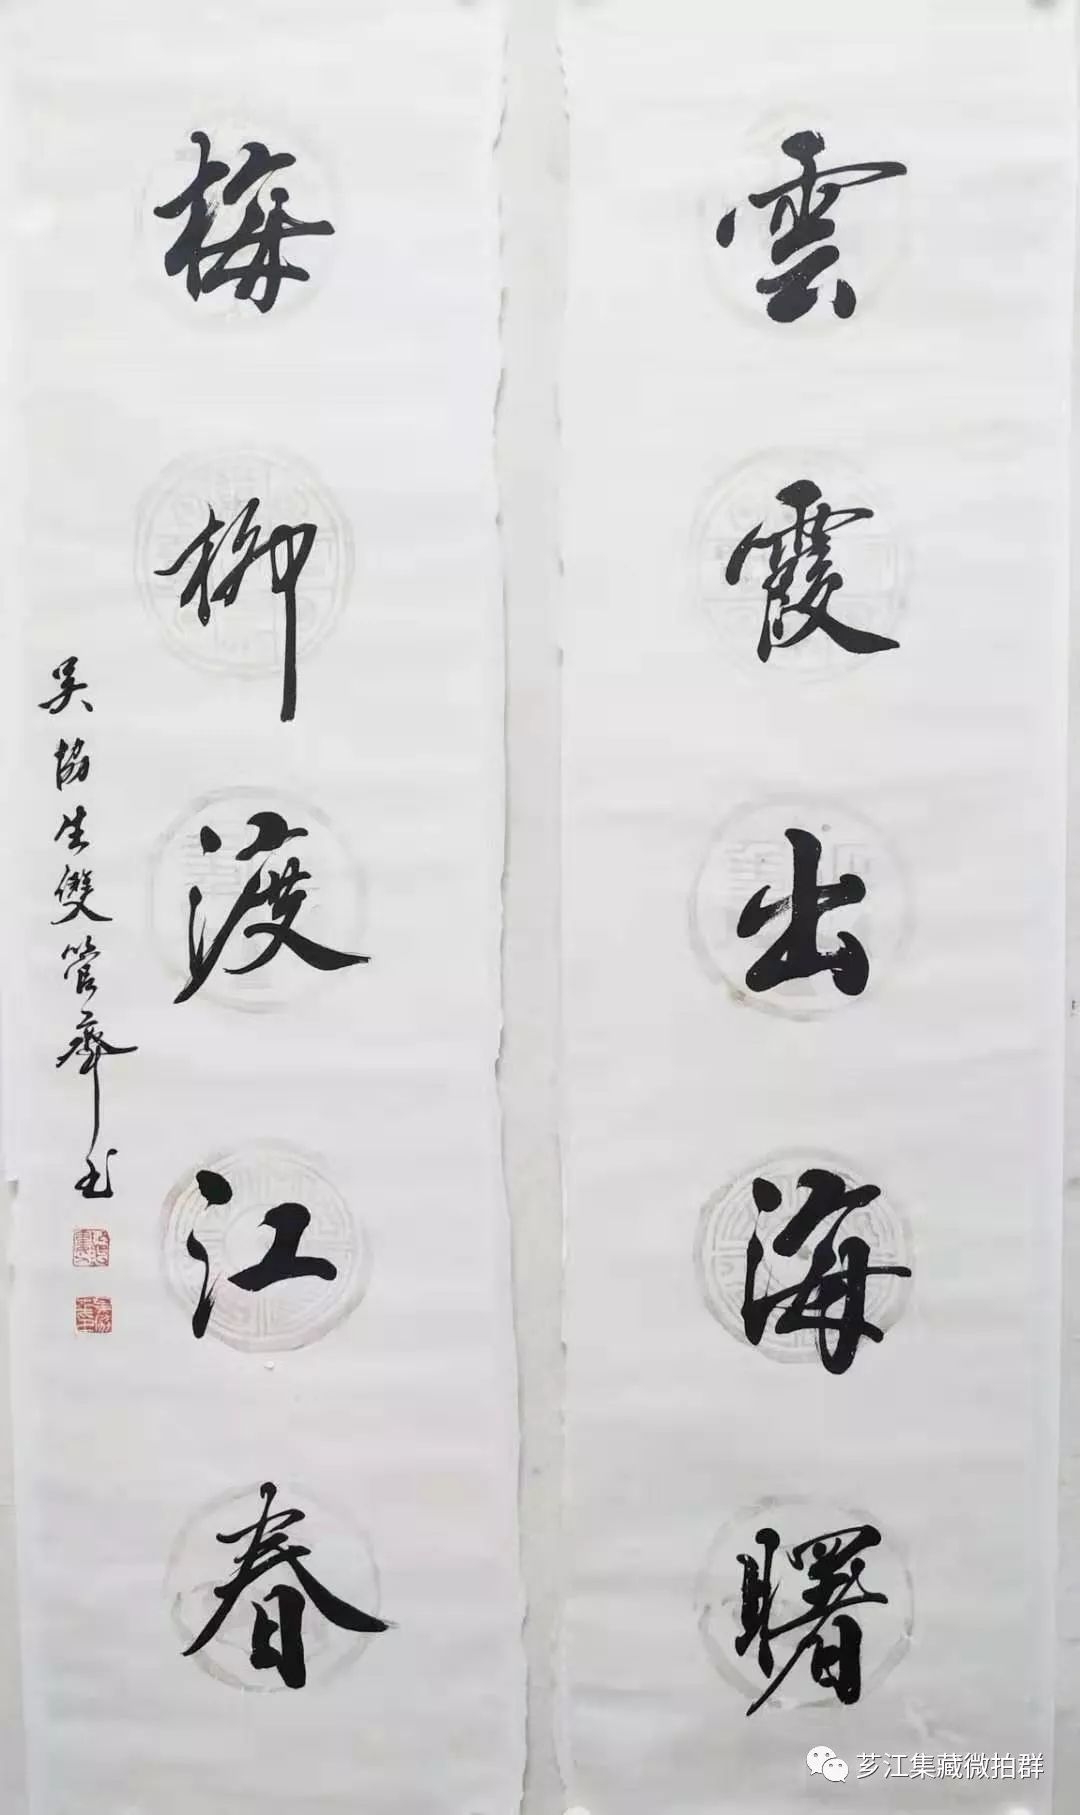 雲霞出海曙
梅柳渡江春
吴協生雙管齋書
芗江集藏微拍群